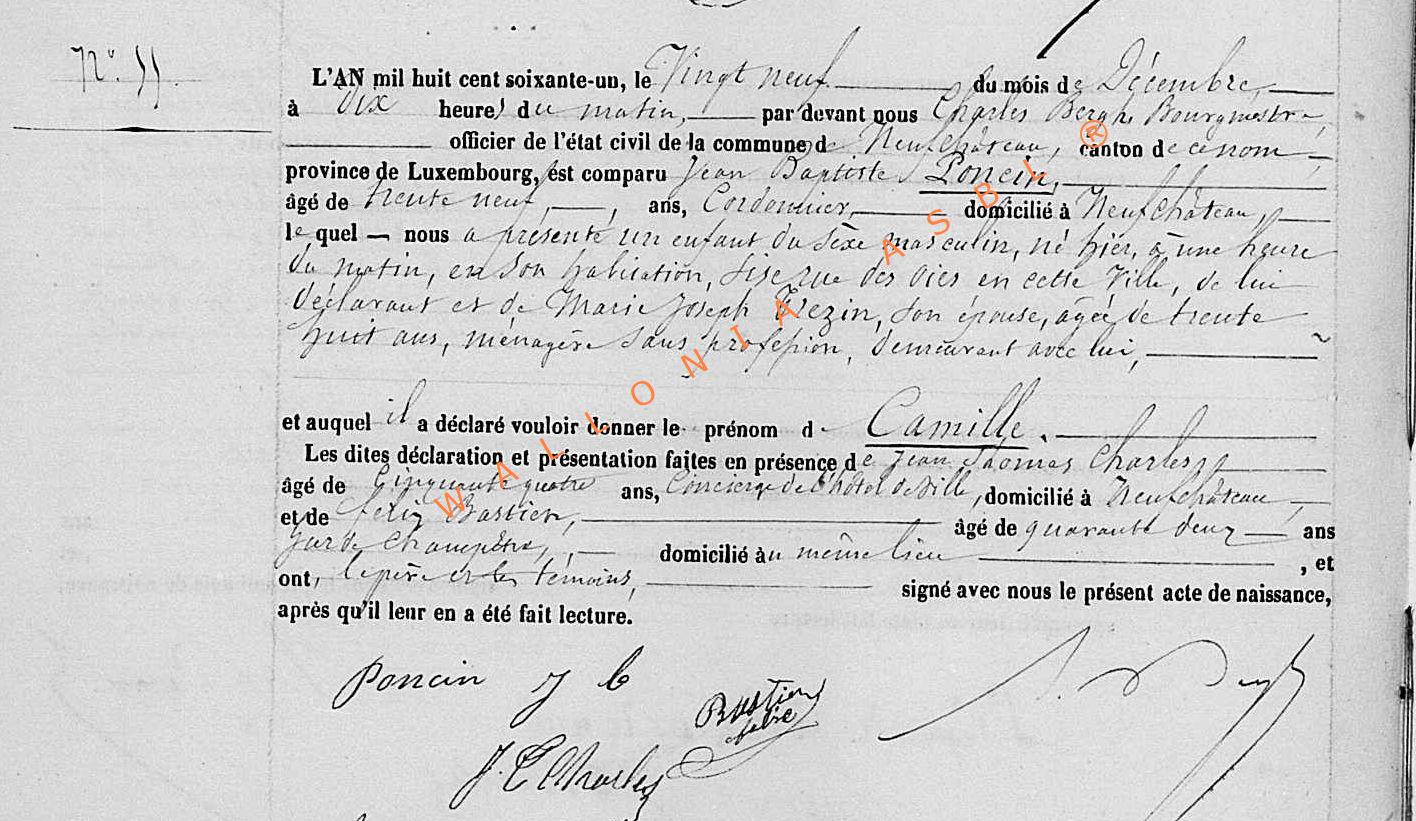 N° 55.
L'AN mil huit cent soixante-un, le Vingt neuf du mois de Décembre,
à Dix heures du matin, par devant nous Charles Berghe Bourgmestre,
officier de l'état civil de la commune de Neufchâteau, canton de ce nom
province de Luxembourg, est comparu Jean Baptiste Poncin,
âgé de trente neuf, ans, Cordonnier, domicilié à Neufchâteau,
lequel nous a présenté un enfant du sèxe masculin, né hier, à une heure
du matin, en son habitation, sise rue des oies en cette Ville, de lui
déclarant et de Marie Joseph Frezin, son épouse, agée de trente
huit ans, ménagère sans profession, demeurant avec lui,
et auquel il a déclaré vouloir donner le prénom de Camille.
Les dites déclaration et présentation faites en présence de Jean Thomas Charles,
âgé de Cinquante quatre ans, Concierge de l'hôtel de Ville, domicilié à Neufchâteau,
et de Felix Bastien, âgé de quarante deux ans
Garde Champêtre, domicilié au même lieu, et
ont, le père et les témoins, signé avec nous le présent acte de naissance,
après qu'il leur en a été fait lecture.
Poncin J b
Bastien
felix
J. T. Charles
WALLONIA ASBL ®